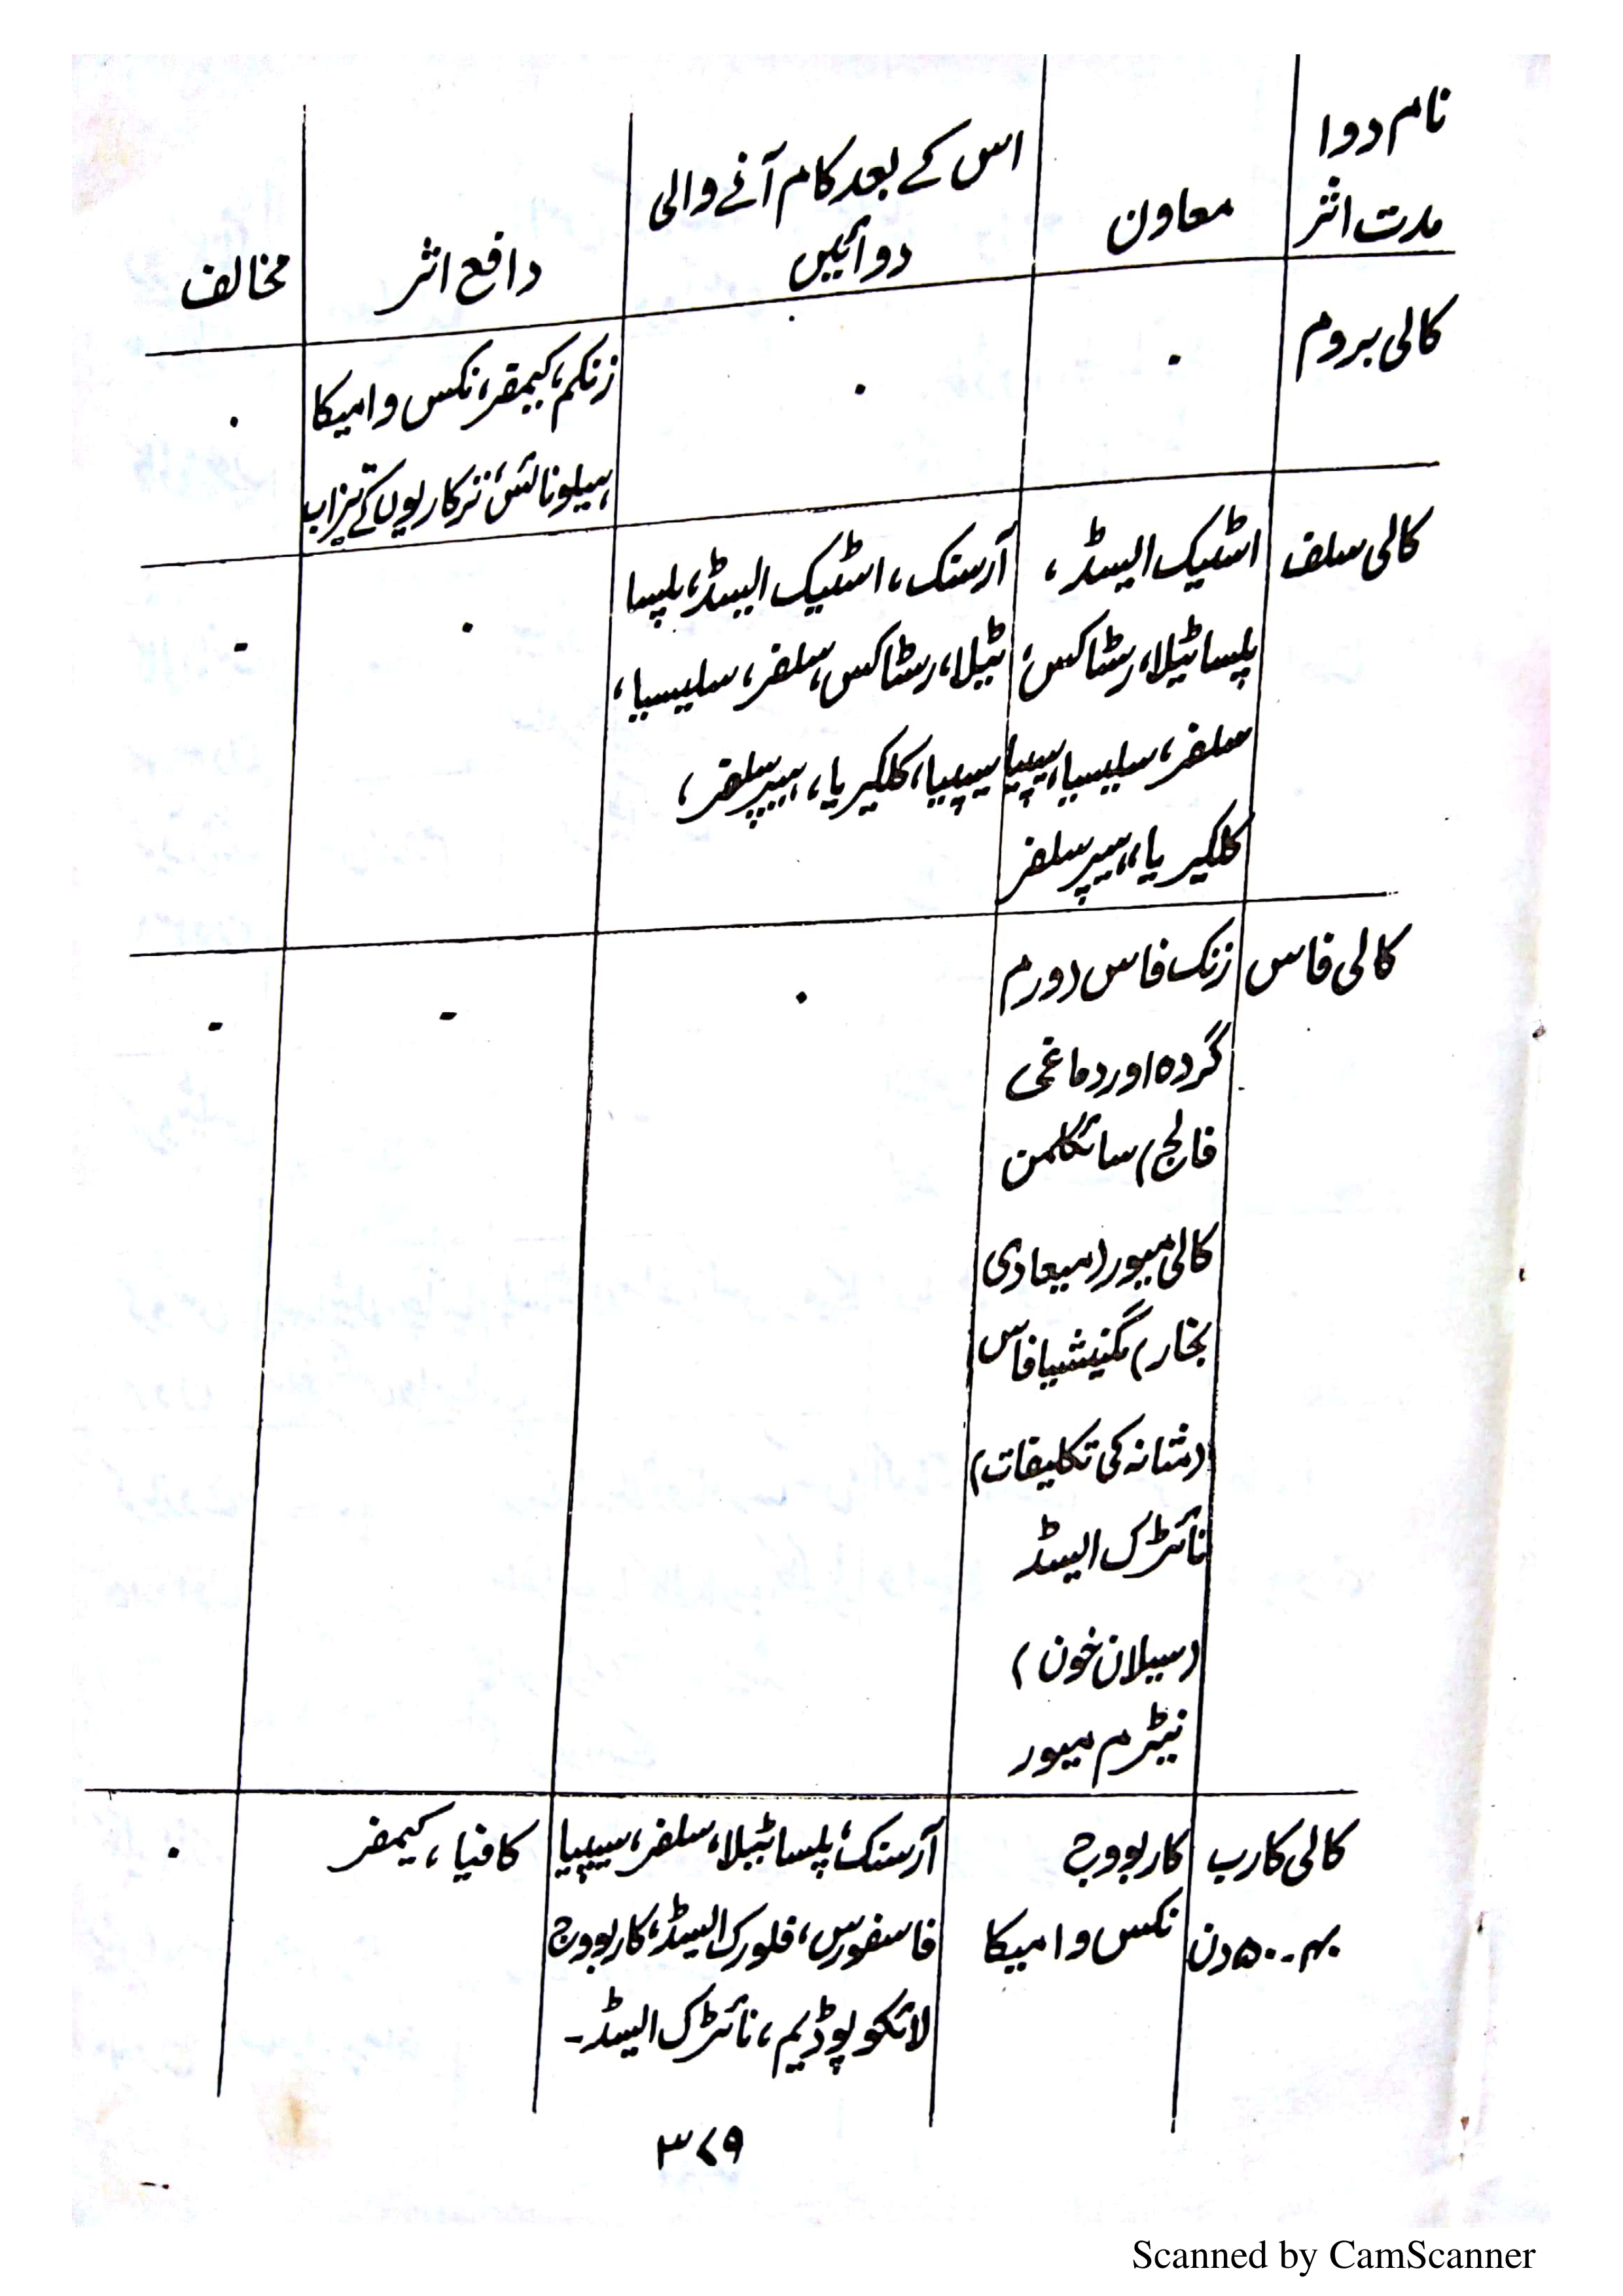 نام دوا
مدت اثر
معاون
اس کے بعد کام آنے والی
دوائیں
دافع اثر
مخالف
کالی بروم
.
.
زنکم، کیمفر، نکس وامیکا
ہیلونائس، ترکاریوں کے تیزاب
.
کالی سلف
اسٹیک ایسڈ،
پلساٹیلا، رسٹاکس،
سلفر، سلیسیا، سیپیا
کلکیریا، ہیپر سلفر
آرسنک، اسٹیک ایسڈ، پلسا
ٹیلا، رسٹاکس، سلفر، سلیسیا،
سیپیا، کلکیریا، ہیپر سلفر،
.
-
کالی فاس
زنک فاس (ورم
گردہ اور دماغی
فالج) سائکلمن
کالی میور (میعادی
بخار) مگنیشیا فاس
(مثانہ کی تکلیفات)
نائٹرک ایسڈ
(سیلان خون)
نیٹرم میور
.
-
-
کالی کارب
۴۰۔۵۰ دن
کاربوویج
نکس وامیکا
آرسنک، پلساٹیلا، سلفر، سیپیا
فاسفورس، فلورک ایسڈ، کاربوویج
لائکوپوڈیم، نائٹرک ایسڈ۔
کافیا، کیمفر
.
۳۷۹
Scanned by CamScanner